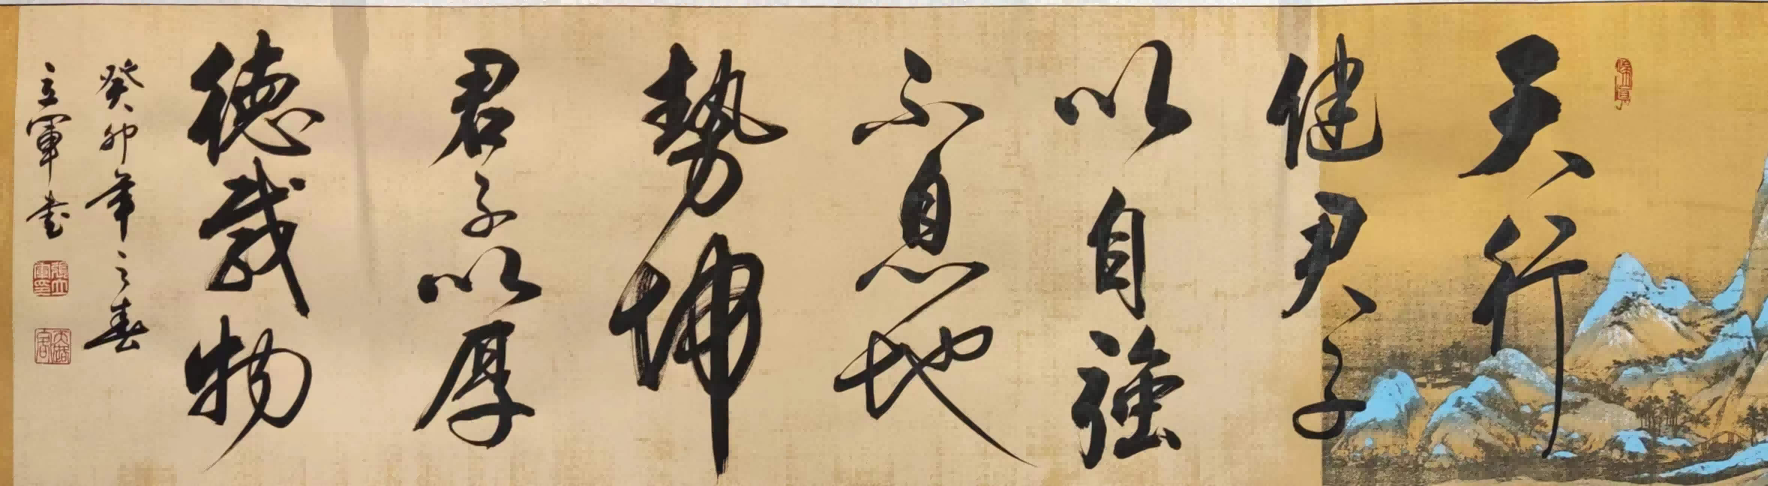 天行
健君子
以自強
不息地
勢坤
君子以厚
德載物
癸卯年之春
立軍書